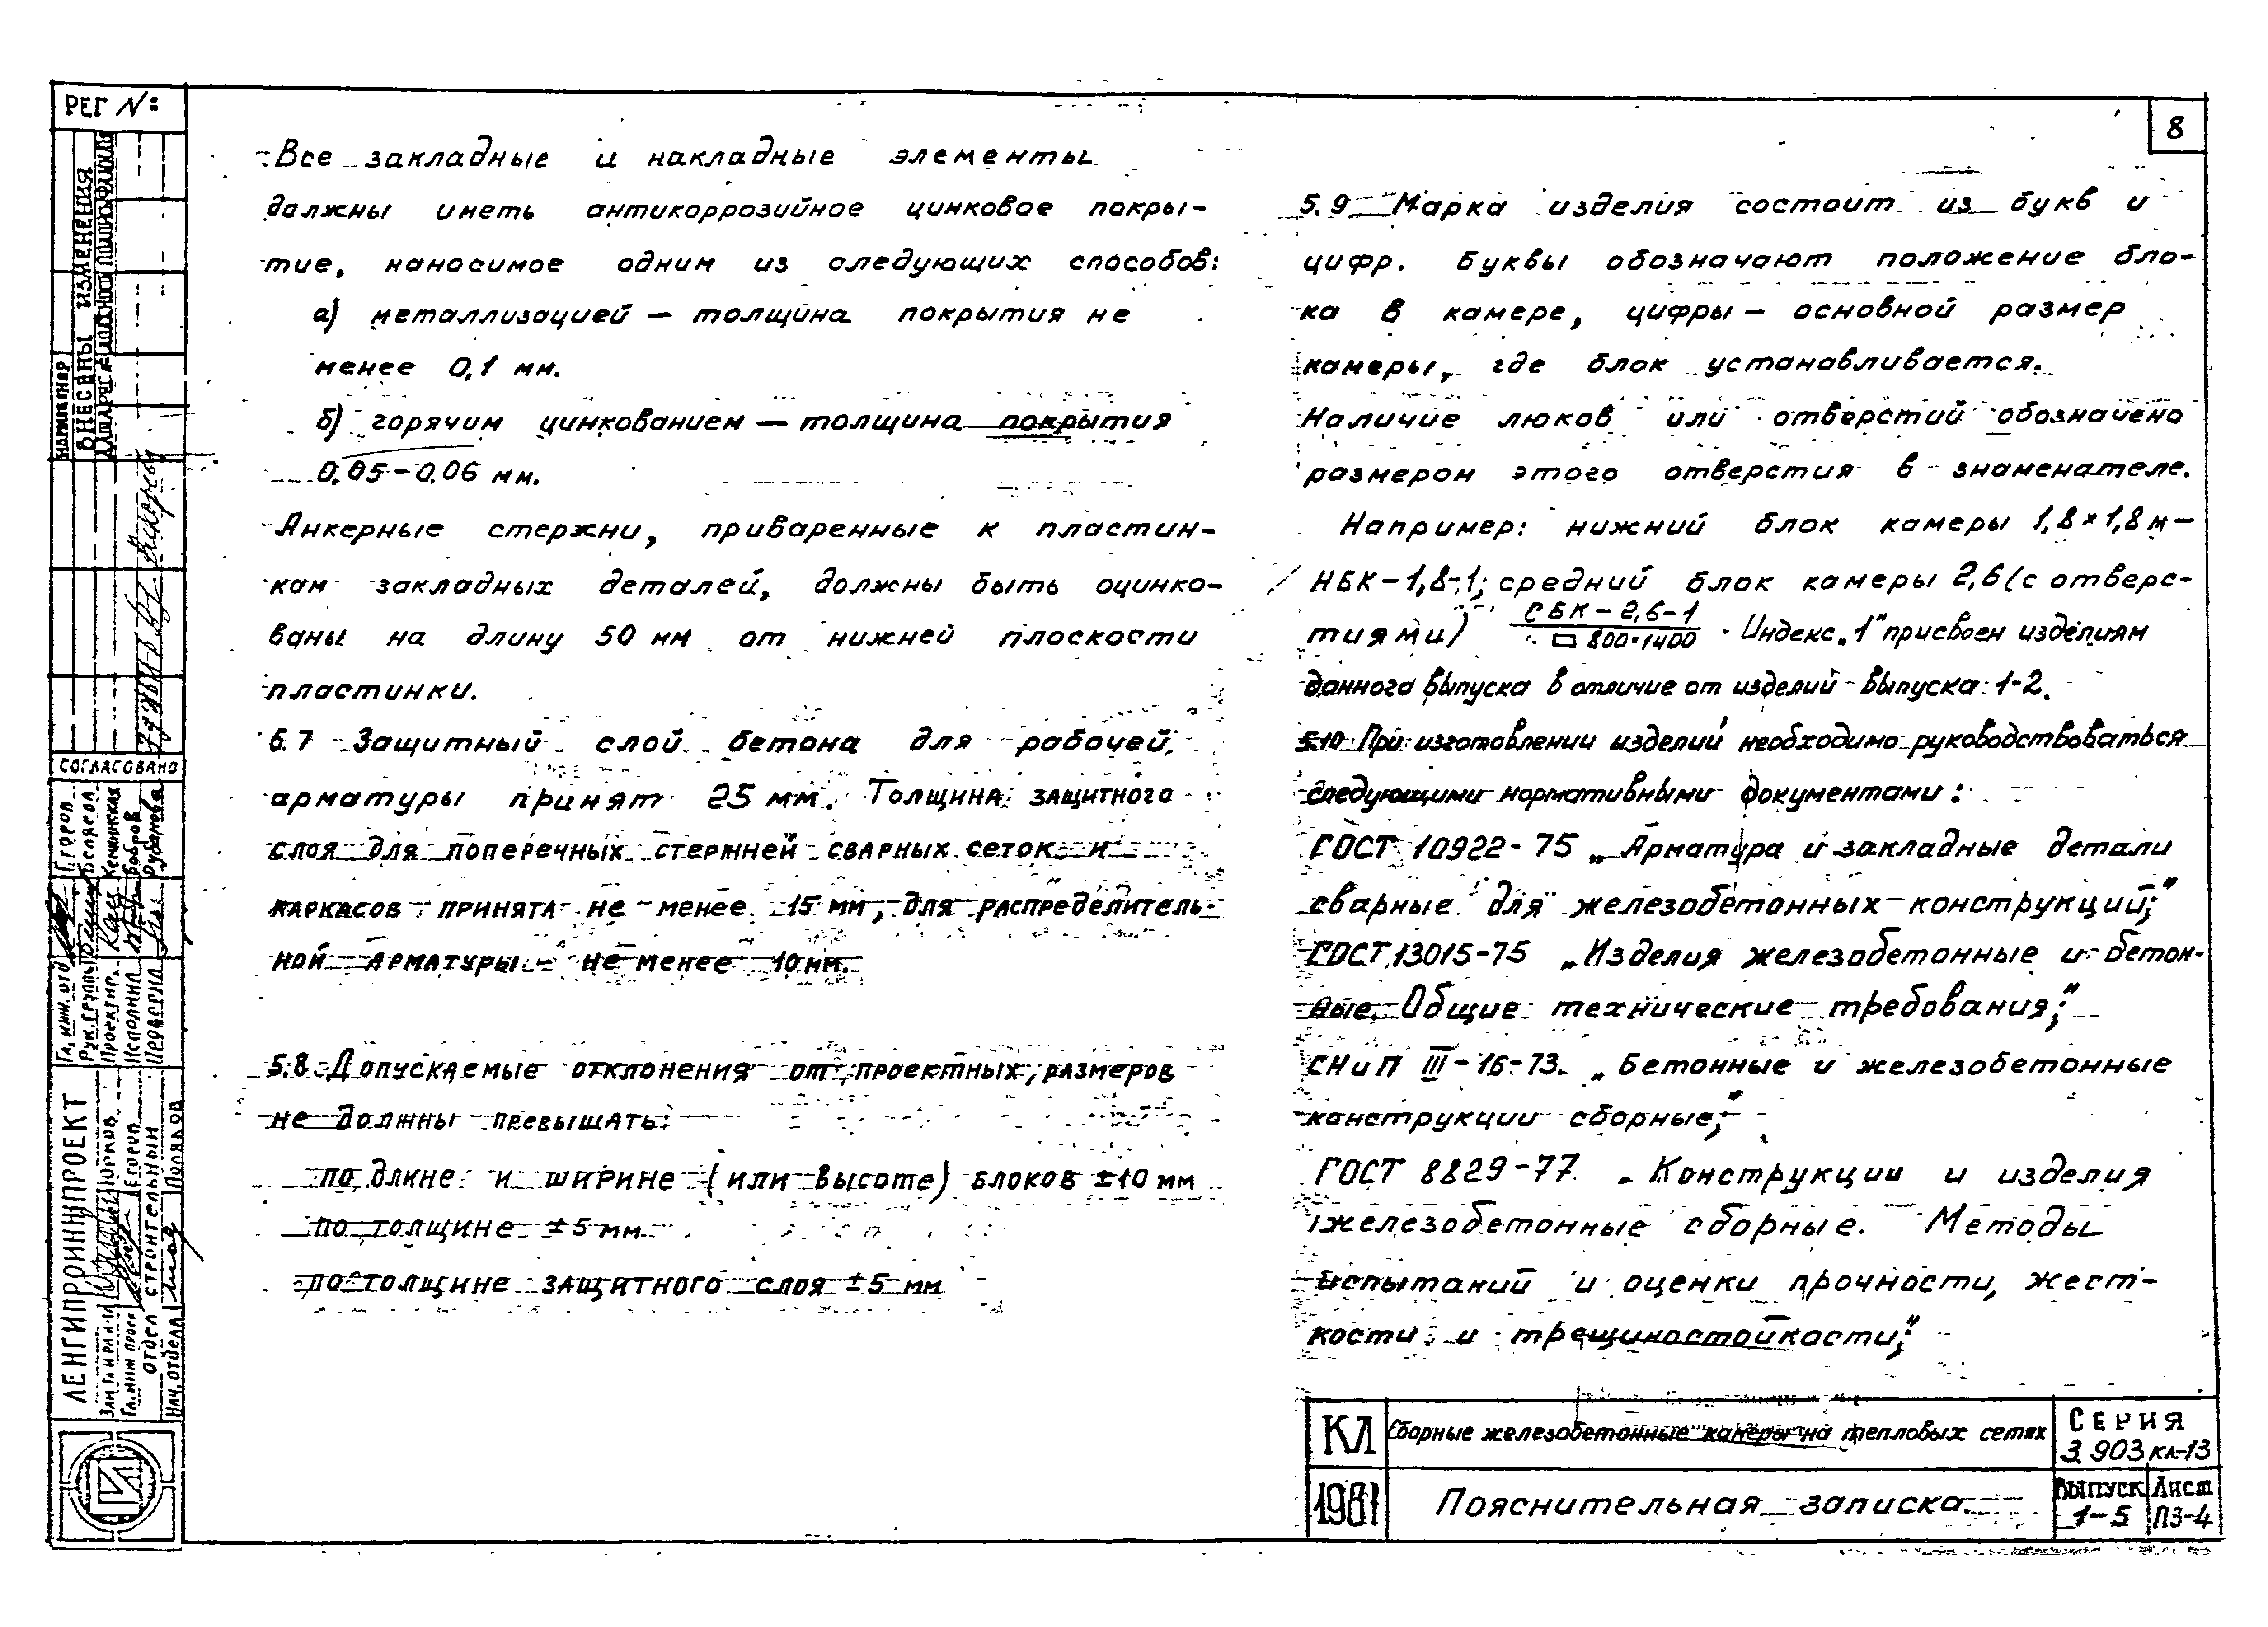 РЕГ №:
8
Все закладные и накладные элементы
должны иметь антикоррозийное цинковое покры-
тие, наносимое одним из следующих способов:
а) металлизацией — толщина покрытия не
менее 0,1 мм.
б) горячим цинкованием — толщина покрытия
0,05-0,06 мм.
Анкерные стержни, приваренные к пластин-
кам закладных деталей, должны быть оцинко-
ваны на длину 50 мм от нижней плоскости
пластинки.
5.7 Защитный слой бетона для рабочей
арматуры принят 25 мм. Толщина защитного
слоя для поперечных стержней сварных сеток и
каркасов принята не менее 15 мм, для распределитель-
ной арматуры - не менее 10 мм.
5.8 Допускаемые отклонения от проектных размеров
не должны превышать:
по длине и ширине (или высоте) блоков ±10 мм
по толщине ±5 мм.
по толщине защитного слоя ±5 мм
5.9 Марка изделия состоит из букв и
цифр. Буквы обозначают положение бло-
ка в камере, цифры — основной размер
камеры, где блок устанавливается.
Наличие люков или отверстий обозначено
размером этого отверстия в знаменателе.
Например: нижний блок камеры 1,8×1,8 м —
НБК-1,8-1; средний блок камеры 2,6 (с отверс-
тиями) СБК-2,6-1 / □ 800×1400 . Индекс „1" присвоен изделиям
данного выпуска в отличие от изделий выпуска 1-2.
5.10 При изготовлении изделий необходимо руководствоваться
следующими нормативными документами:
ГОСТ 10922-75 „Арматура и закладные детали
сварные для железобетонных конструкций;"
ГОСТ 13015-75 „Изделия железобетонные и бетон-
ные. Общие технические требования;"
СНиП III-16-73. „Бетонные и железобетонные
конструкции сборные;"
ГОСТ 8829-77 „Конструкции и изделия
железобетонные сборные. Методы
испытаний и оценки прочности, жест-
кости и трещиностойкости;"
КЛ
Сборные железобетонные камеры на тепловых сетях
Серия
3.903 кл-13
1981
Пояснительная записка.
Выпуск
1-5
Лист
ПЗ-4
ВНЕСЕНЫ ИЗМЕНЕНИЯ
СОГЛАСОВАНО
Егоров
Беляева
Бобров
Рубанова
Гл. инж. отд
Рук. группы
Проектир.
Исполнил
Проверил
ЛЕНГИПРОИНЖПРОЕКТ
Юрков
Егоров
отдел строительный
Нач. отдела
Поляков